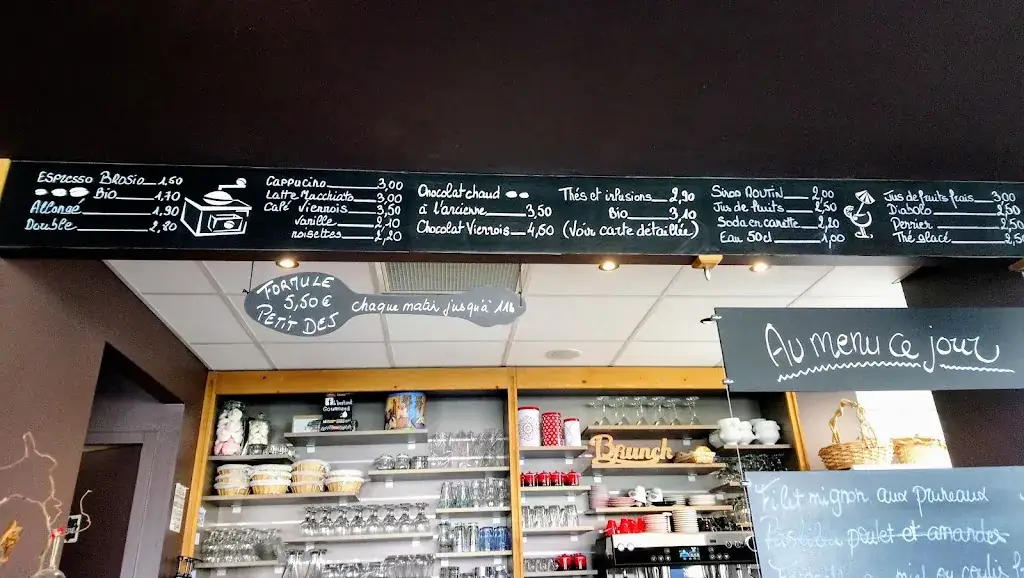 Espresso Brasio 1,60
Bio 1,70
Allongé 1,90
Double 2,80
Cappucino 3,00
Latte Macchiato 3,00
Café Viennois 3,50
vanille 2,10
noisettes 2,20
Chocolat chaud
à l'ancienne 3,50
Chocolat Viennois 4,50
Thés et infusions 2,90
Bio 3,10
(Voir carte détaillée)
Sirop ROUTIN 2,00
Jus de fruits 2,50
Soda en canette 2,20
Eau 50cl 1,00
Jus de fruits frais 3,00
Diabolo 2,50
Perrier 2,50
Thé glacé 2,5
FORMULE
5,50€
PETIT DEJ
chaque matin jusqu'à 11h
Au menu ce jour
Brunch
Gourmand
Filet mignon aux pruneaux
Pastilla poulet et amandes
miel ou coulis